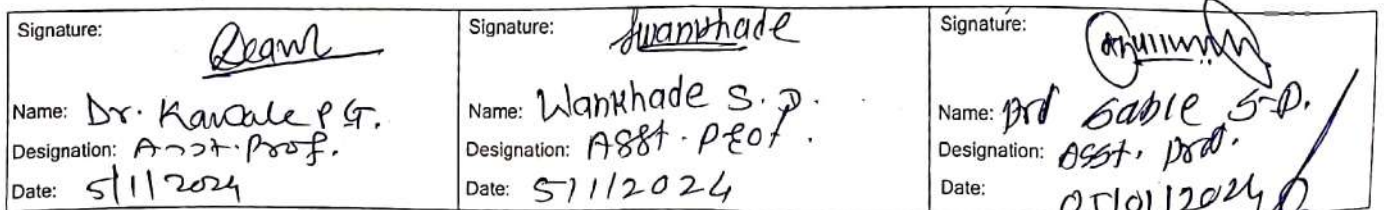 Signature:
Name: Dr. Kavale P G.
Designation: Asst. Prof.
Date: 5/1/2024
Signature: Swankhade
Name: Wankhade S. D.
Designation: Asst. Prof.
Date: 5/1/2024
Signature:
Name: Sable S.D.
Designation: Asst. Prof.
Date: 05/01/2024